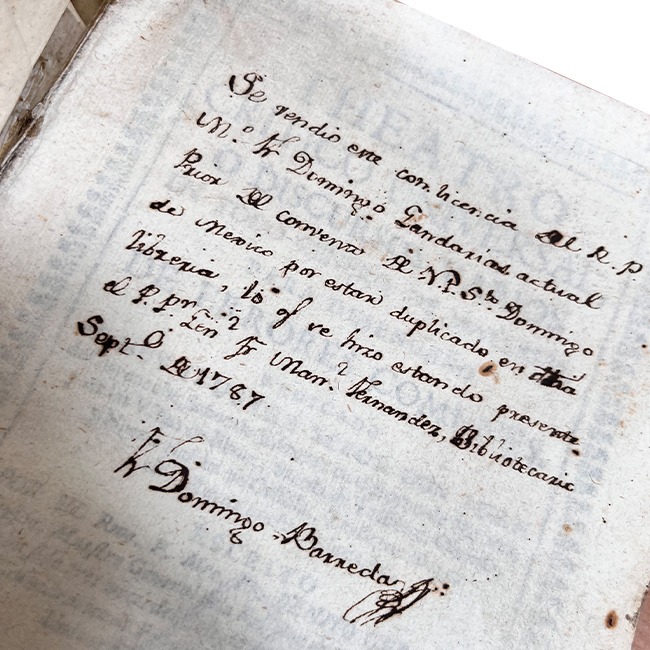 Se vendio este con licencia del R. P.
M.º Fr Domingo Gandarias actual
Prior del convento de N. P. Sto Domingo
de Mexico por estar duplicado en dha
libreria, lo q.e se hizo estando presente
el P. Pr. Len Fr Man.l Fernandez, Bibliotecario
Sept.e de 1787
Fr Domingo Barreda